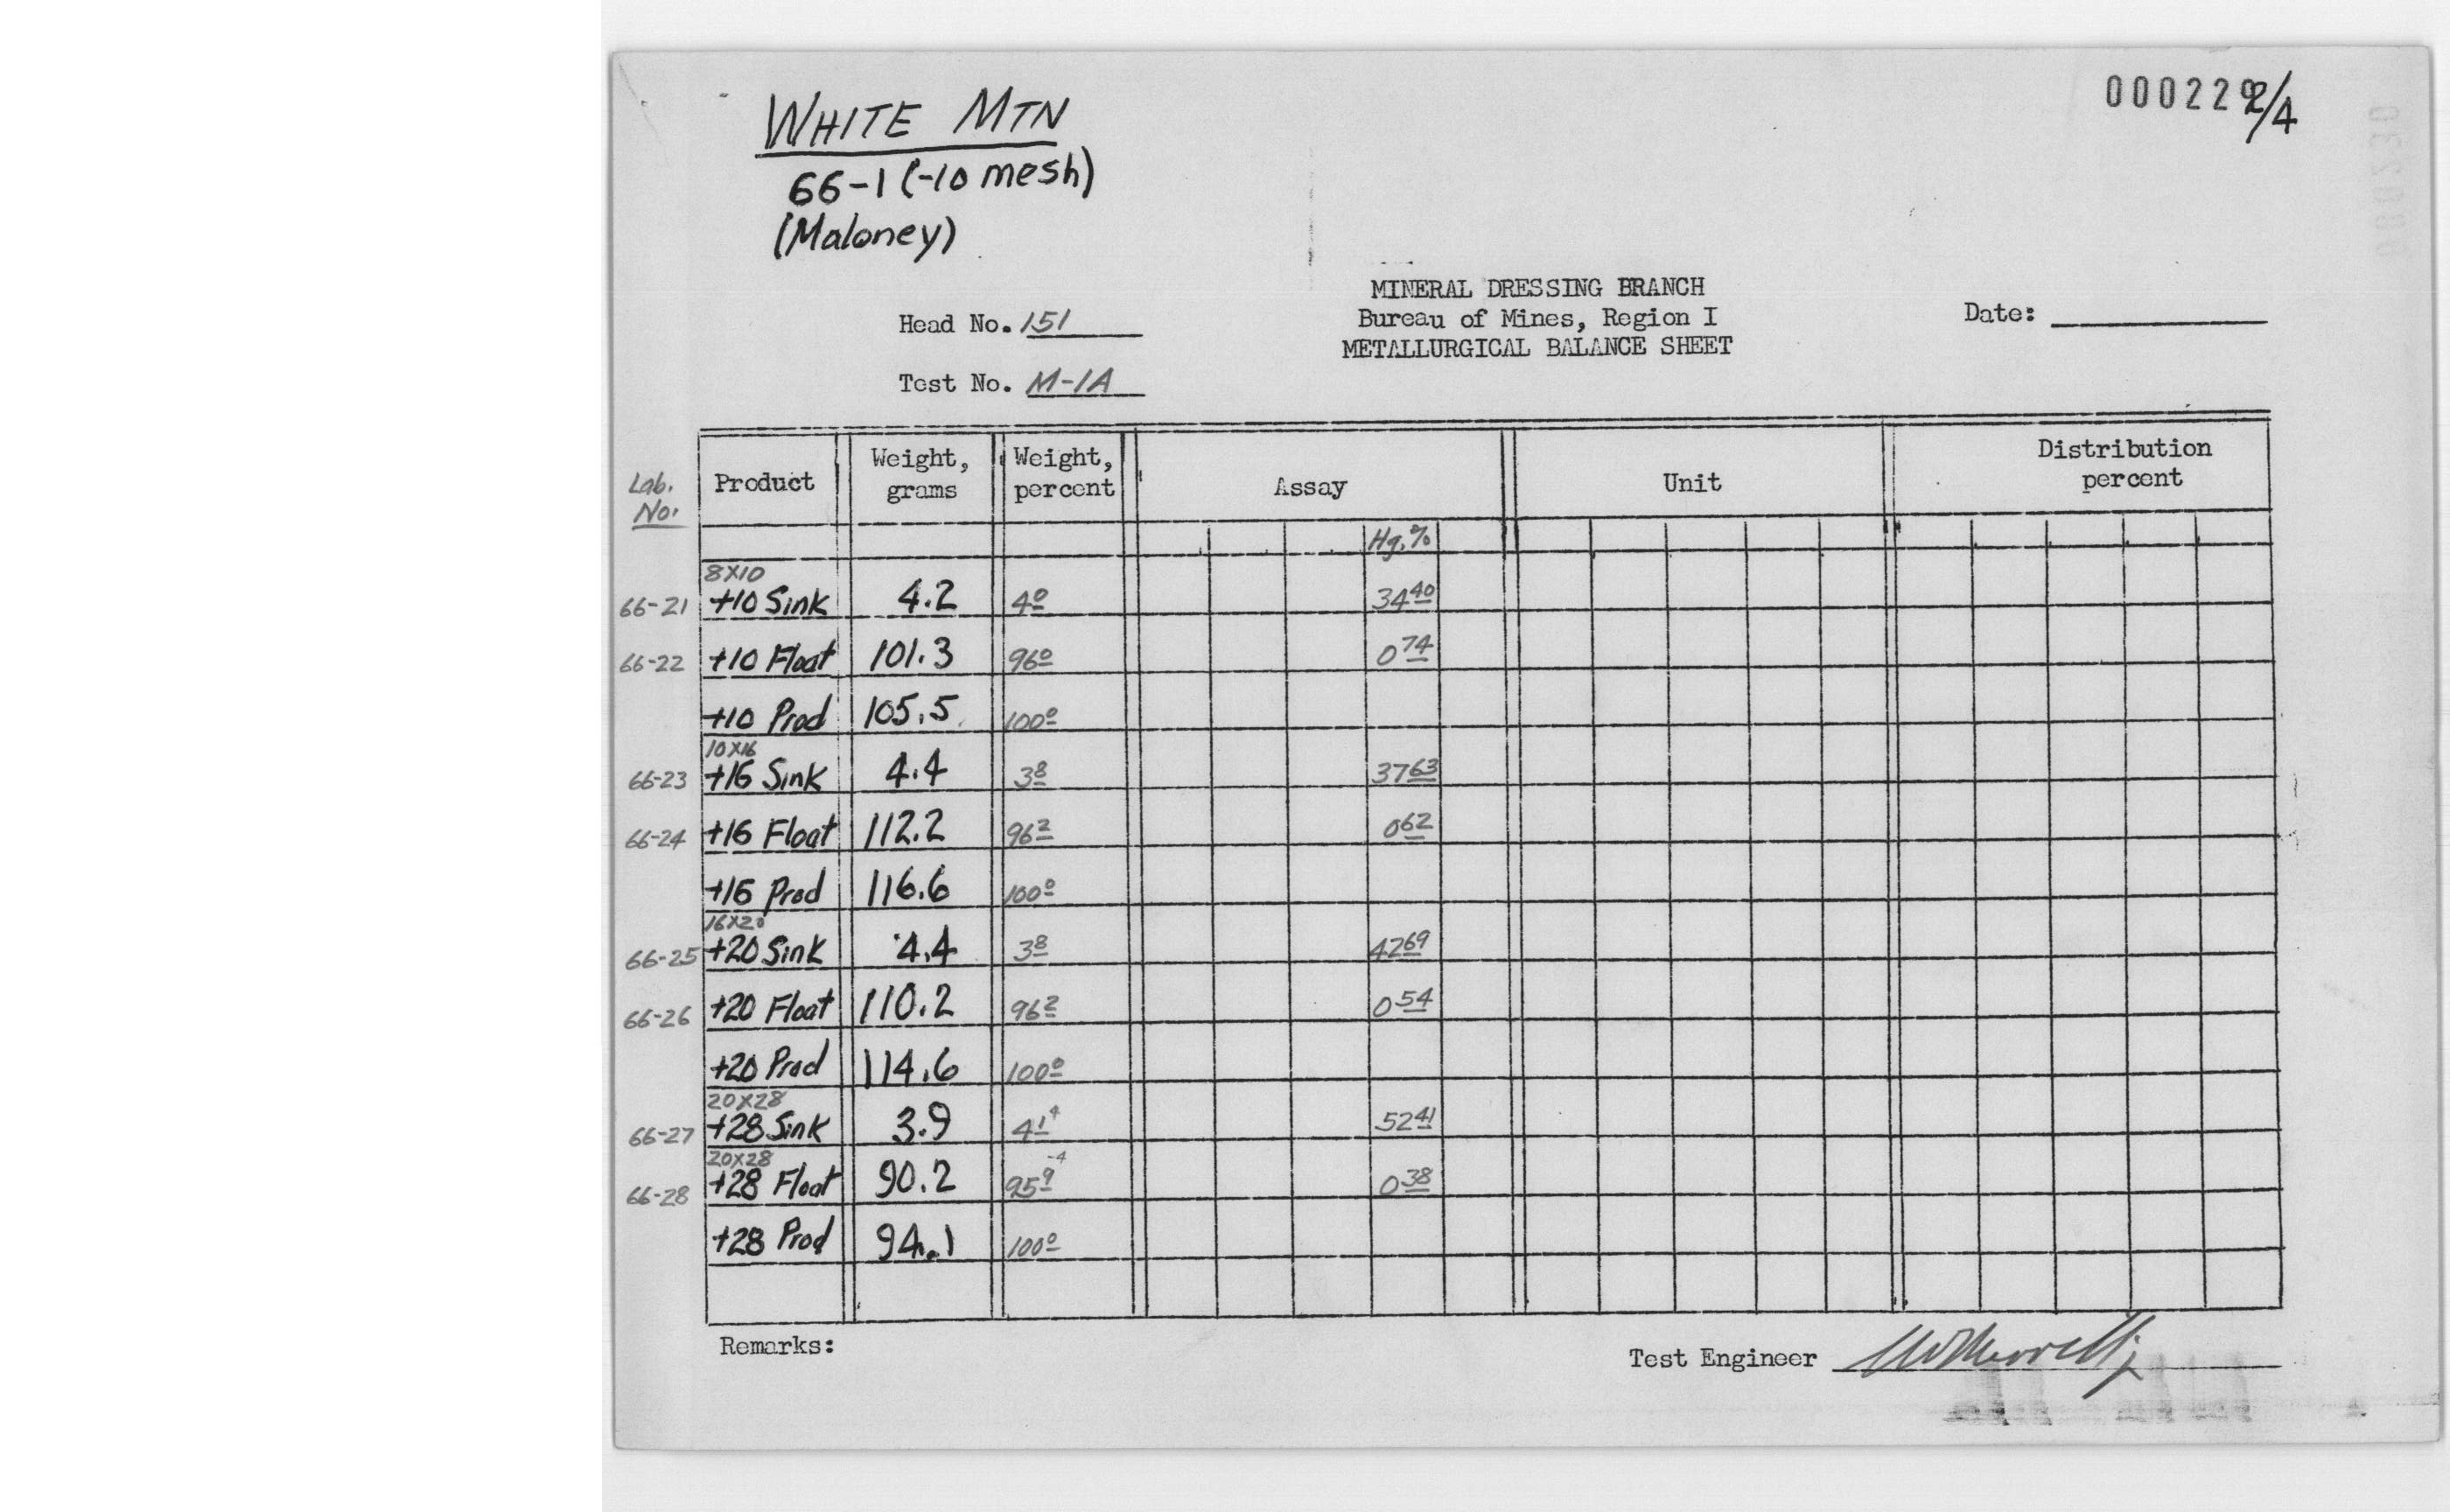 WHITE MTN
66-1 (-10 mesh)
(Maloney)
0002292/4
MINERAL DRESSING BRANCH
Bureau of Mines, Region I
METALLURGICAL BALANCE SHEET
Head No. 151
Date:
Test No. M-1A
Lab. No. Product Weight, grams Weight, percent Assay Unit Distribution percent
Hg.%
8X10
66-21 +10 Sink 4.2 4.0 34.40
66-22 +10 Float 101.3 96.0 0.74
+10 Prod 105.5 100.0
10X16
66-23 +16 Sink 4.4 3.8 37.63
66-24 +16 Float 112.2 96.2 0.62
+16 Prod 116.6 100.0
16X20
66-25 +20 Sink 4.4 3.8 42.69
66-26 +20 Float 110.2 96.2 0.54
+20 Prod 114.6 100.0
20X28
66-27 +28 Sink 3.9 4.14 52.41
20X28
66-28 +28 Float 90.2 95.9 -4 0.38
+28 Prod 94.1 100.0
Remarks:
Test Engineer